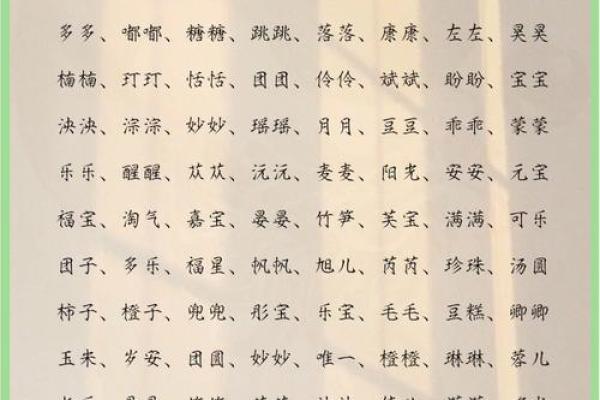 多多、嘟嘟、糖糖、跳跳、落落、康康、左左、昊昊
楠楠、玎玎、恬恬、团团、伶伶、斌斌、盼盼、宝宝
泱泱、淙淙、妙妙、瑶瑶、月月、豆豆、乖乖、蒙蒙
乐乐、醒醒、苡苡、沅沅、麦麦、阳光、安安、元宝
福宝、淘气、嘉宝、晏晏、竹笋、芙宝、满满、可乐
团子、多乐、福星、帆帆、旭儿、芮芮、珍珠、汤圆
柿子、橙子、兜兜、彤宝、乐宝、毛毛、豆糕、卿卿
玉朱、岁安、团圆、妙妙、唯一、橙橙、琳琳、蓉儿